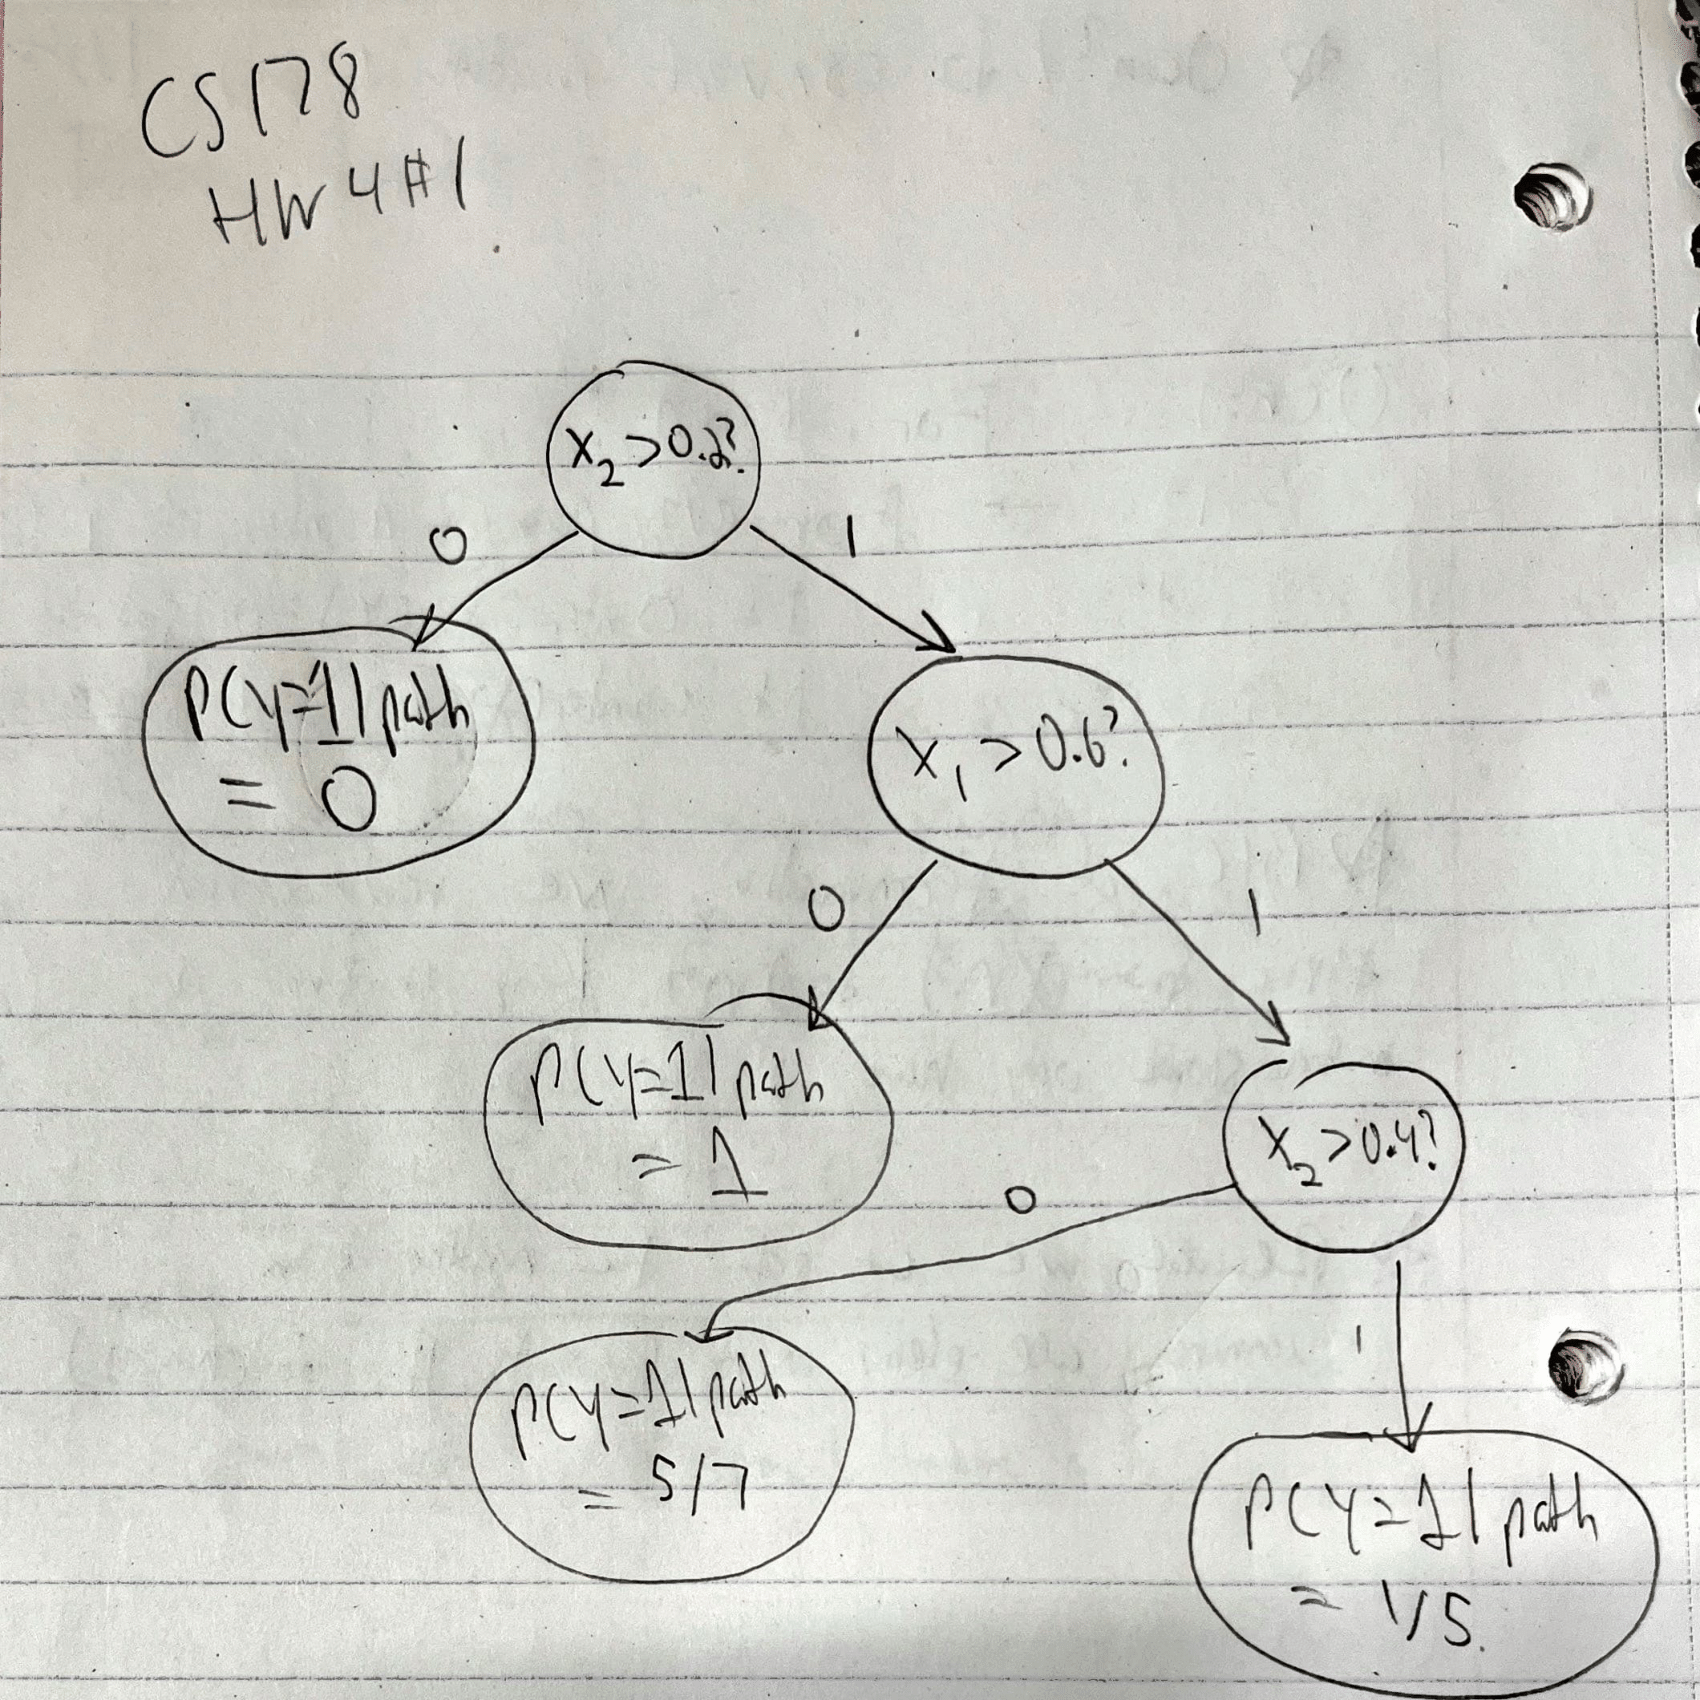 CS178
HW 4 #1
X₂ > 0.2?
0
1
P(Y=1|path
= 0
X₁ > 0.6?
0
1
P(Y=1|path
= 1
X₂ > 0.4?
0
1
P(Y=1|path
= 5/7
P(Y=1|path
= 1/5.